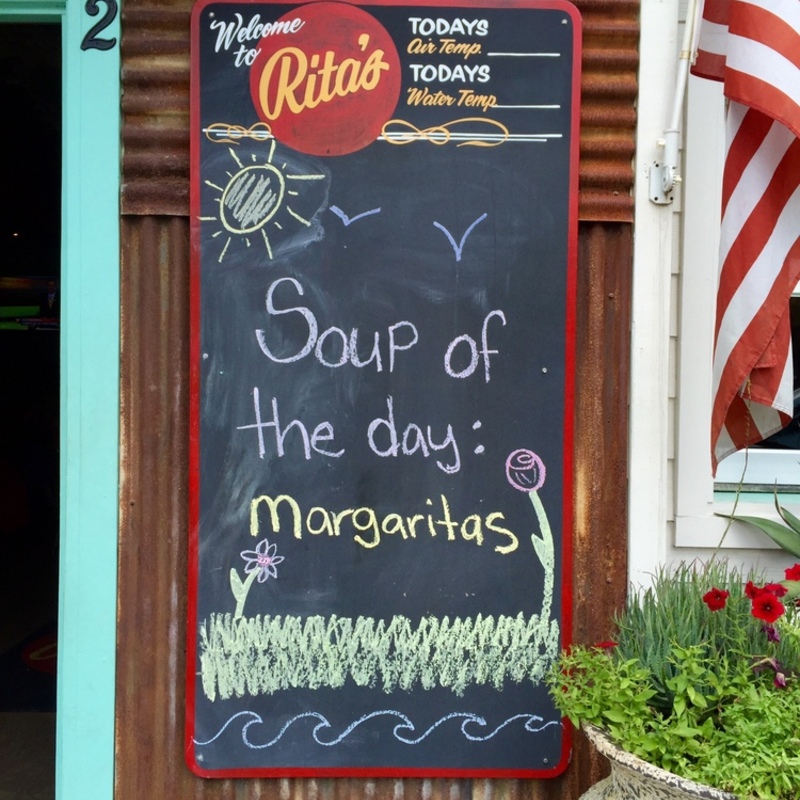 2
Welcome
to
Rita's
TODAYS
Air Temp.
TODAYS
Water Temp
Soup of
the day:
margaritas